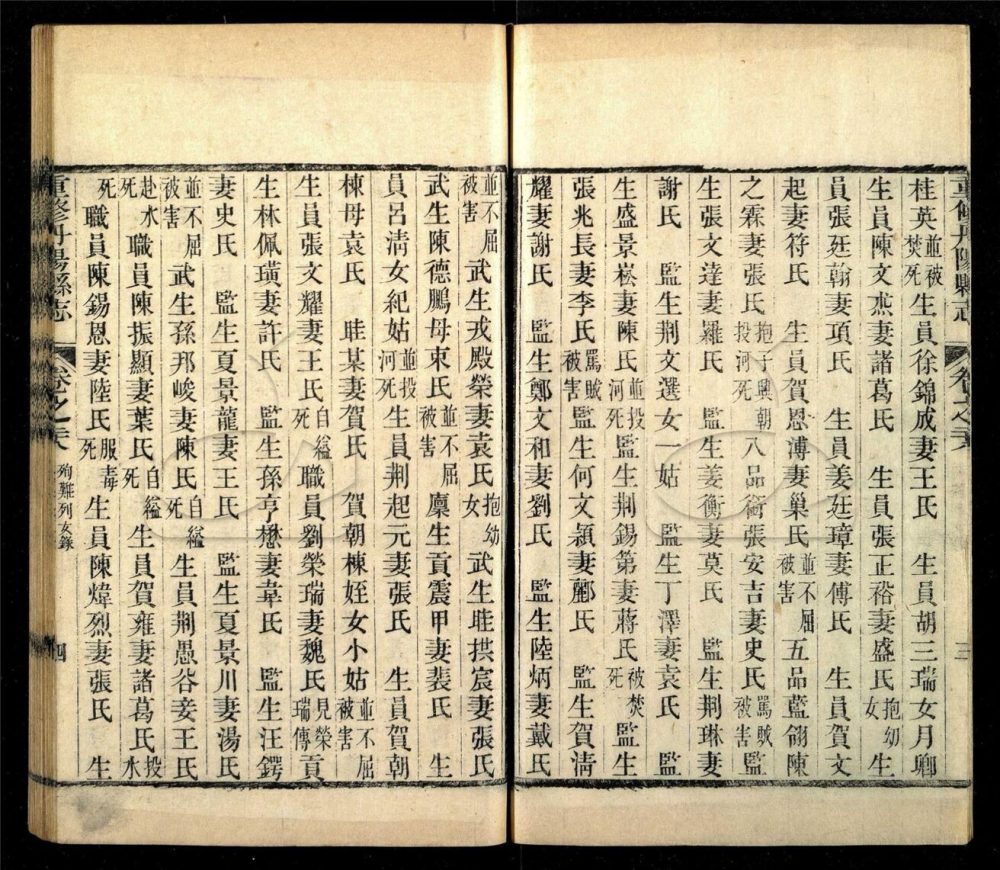 重修丹陽縣志 卷之 三
桂英並被焚死生員徐錦成妻王氏 生員胡三瑞女月卿
生員陳文燾妻諸葛氏 生員張正裕妻盛氏抱幼女生
員張廷翰妻項氏 生員姜廷璋妻傅氏 生員賀文
起妻符氏 生員賀恩溥妻巢氏並不屈被害五品藍翎陳
之霖妻張氏抱子興朝投河死八品銜張安吉妻史氏罵賊被害監
生張文達妻羅氏 監生姜衡妻莫氏 監生荆琳妻
謝氏 監生荆文選女一姑 監生丁澤妻袁氏 監
生盛景崧妻陳氏並投河死監生荆錫第妻蔣氏被焚死監生
張兆長妻李氏罵賊被害監生何文潁妻酈氏 監生賀淸
耀妻謝氏 監生鄭文和妻劉氏 監生陸炳妻戴氏
並不屈被害武生戎殿榮妻袁氏抱幼女武生眭拱宸妻張氏
武生陳德鵬母束氏並不屈被害廩生貢震甲妻裴氏 生
員呂淸女紀姑並投河死生員荆起元妻張氏 生員賀朝
棟母袁氏 眭某妻賀氏 賀朝棟姪女小姑並不屈被害
生員張文耀妻王氏自縊死職員劉榮瑞妻魏氏見榮瑞傳貢
生林佩璜妻許氏 監生孫亨懋妻韋氏 監生汪鍔
妻史氏 監生夏景龍妻王氏 監生夏景川妻湯氏
並不屈被害武生孫邦峻妻陳氏自縊死生員荆愚谷妾王氏
赴水死職員陳振顯妻葉氏自縊死生員賀雍妻諸葛氏投水
死職員陳錫恩妻陸氏服毒死生員陳煒烈妻張氏 生
重修丹陽縣志 卷之 殉難列女錄 四